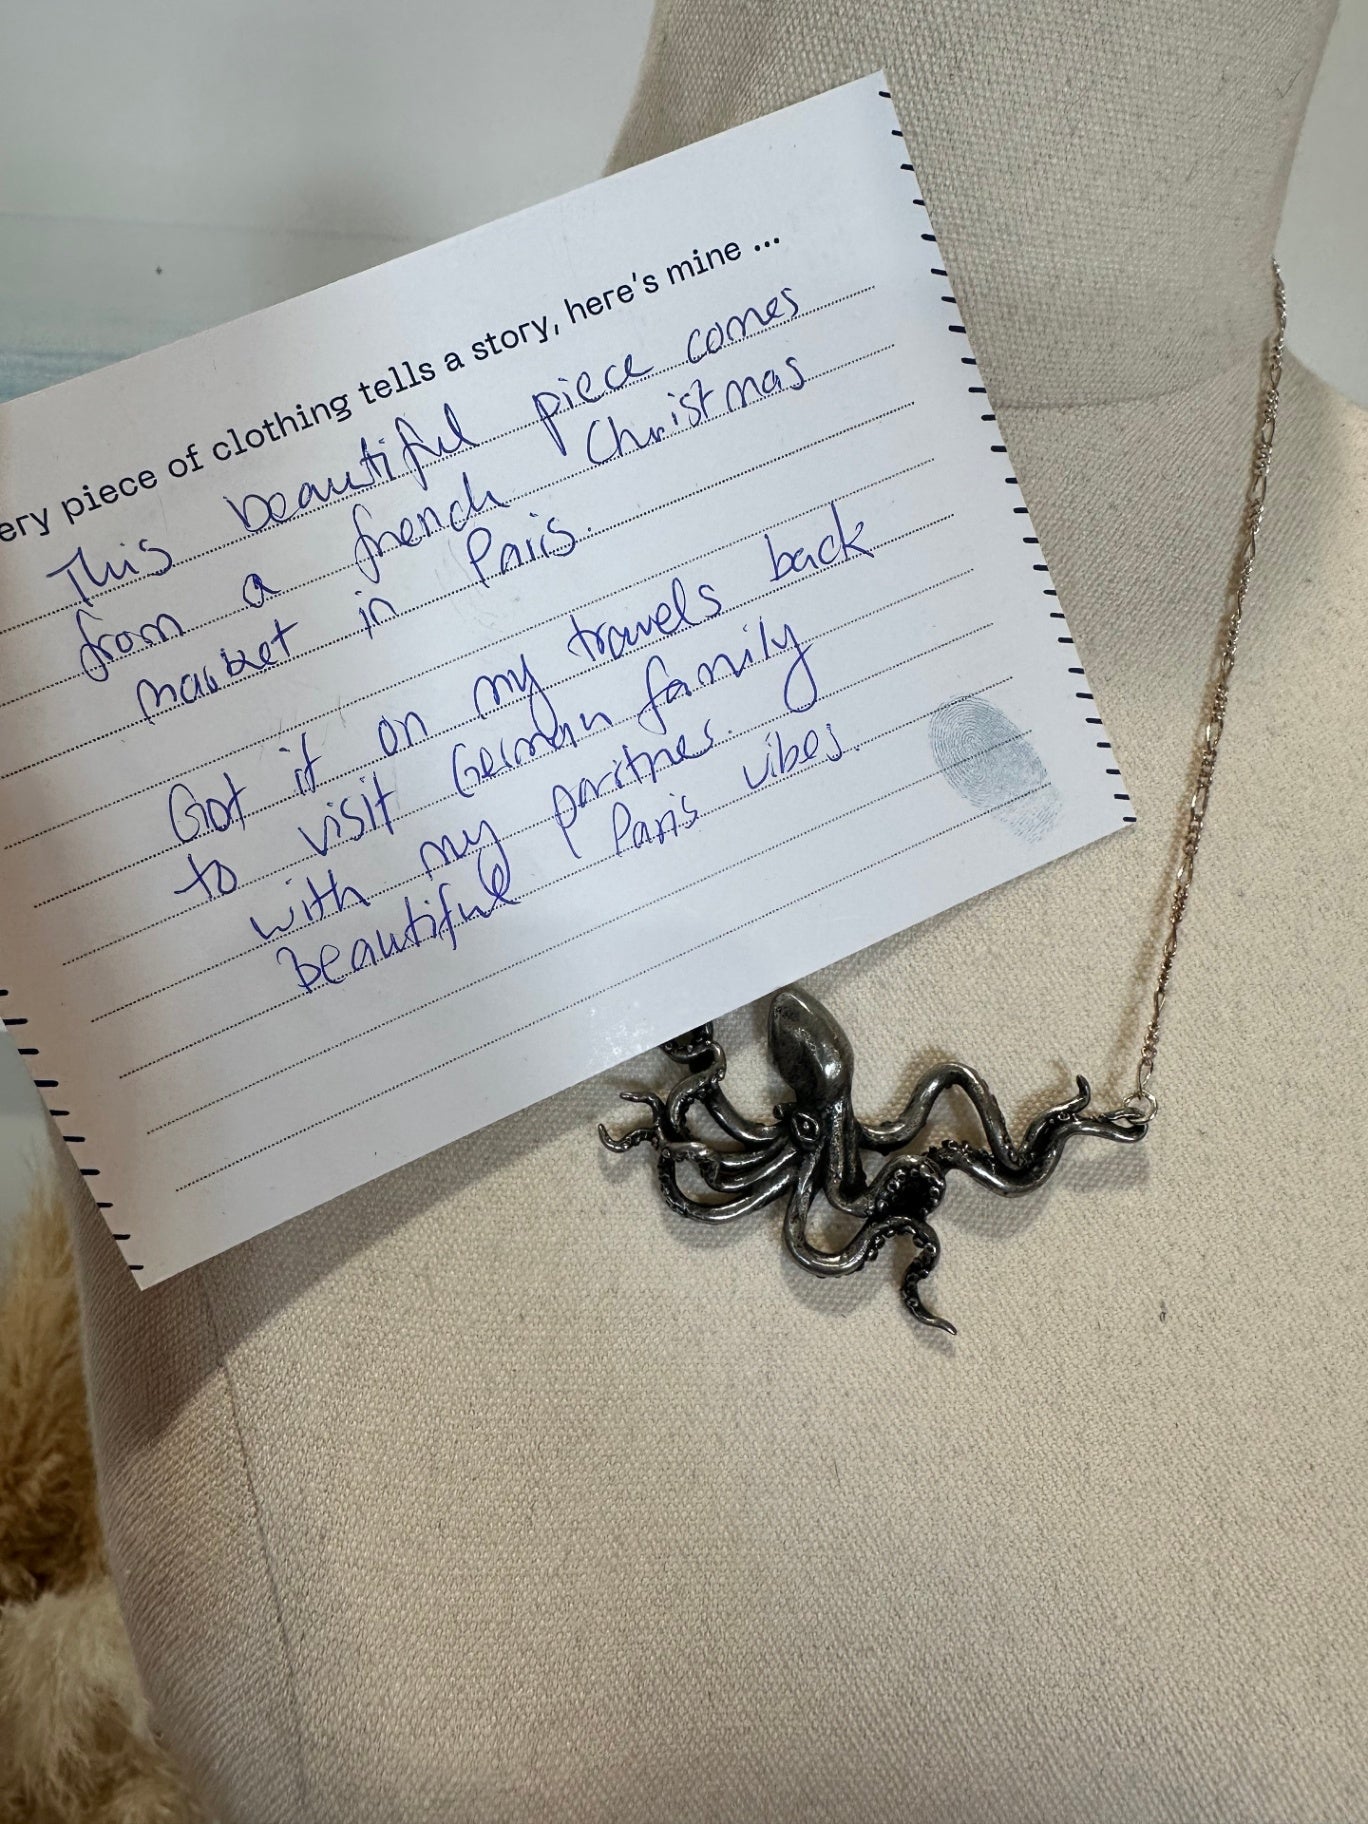 ery piece of clothing tells a story, here's mine ...
This beautiful piece comes
from a french Christmas
market in Paris.
Got it on my travels back
to visit German family
with my partner.
Beautiful Paris vibes.